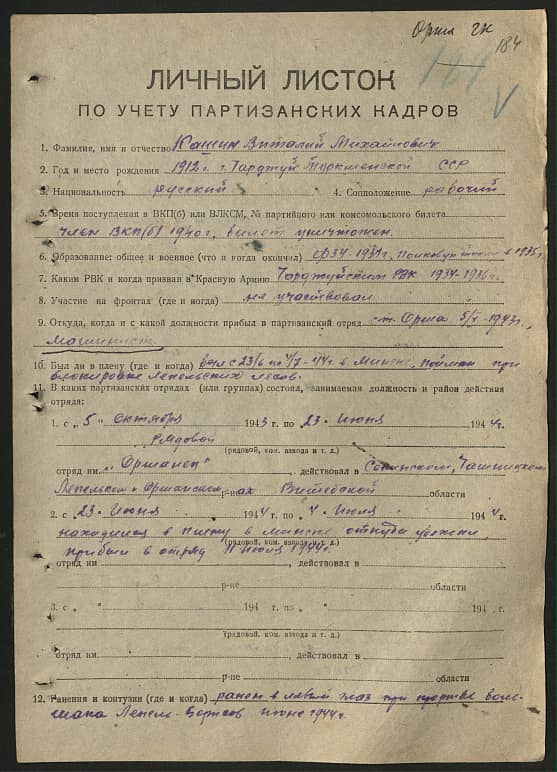 Орша ГК
184
ЛИЧНЫЙ ЛИСТОК
ПО УЧЕТУ ПАРТИЗАНСКИХ КАДРОВ
1. Фамилие, имя и отчество Кашин Виталий Михайлович
2. Год и место рождения 1912 г. Чарджуй Туркменской ССР
3. Национальность русский 4. Соцположение рабочий
5. Время поступления в ВКП(б) или ВЛКСМ, № партийного или комсомольского билета
член ВКП(б) 1940 г, билет уничтожен.
6. Образование: общее и военное (что и когда окончил) ФЗУ-1931 г, в 1935 г.
7. Каким РВК и когда призван в Красную Армию Чарджуйским РВК 1934-1936 г.
8. Участие на фронтах (где и когда) не участвовал
9. Откуда, когда и с какой должности прибыл в партизанский отряд ст. Орша 5/X-1943 г.
машинист
10. Был ли в плену (где и когда) был с 23/6 по 4/7-44 г в Минске, пойман при
блокировке Лепельских лесов.
11. В каких партизанских отрядах (или группах) состоял, занимаемая должность и район действия
отряда:
1. с „ 5 " Октября 1943 г. по 23-Июня 1944 г.
Рядовой
(рядовой, ком. взвода и т. д.)
отряд им. „Оршанец", действовал в Сенненском, Чашникском
Лепельском и Оршанском р-нах Витебской области
2. с „ 23-Июня 1944 г. по „ 4-Июля 1944 г.
находился в плену в Минске откуда
(рядовой, ком. взвода и т. д.)
прибыл в отряд 11 июля 1944 г.
отряд им , действовал в
р-не области
3. с „ " 194 г. по „ " 194 г.
(рядовой, ком. взвода и т. д.)
отряд им , действовал в
р-не области
12. Ранения и контузии (где и когда) ранен в левый глаз при прорыве
Лепель-Борисов июне 1944 г.